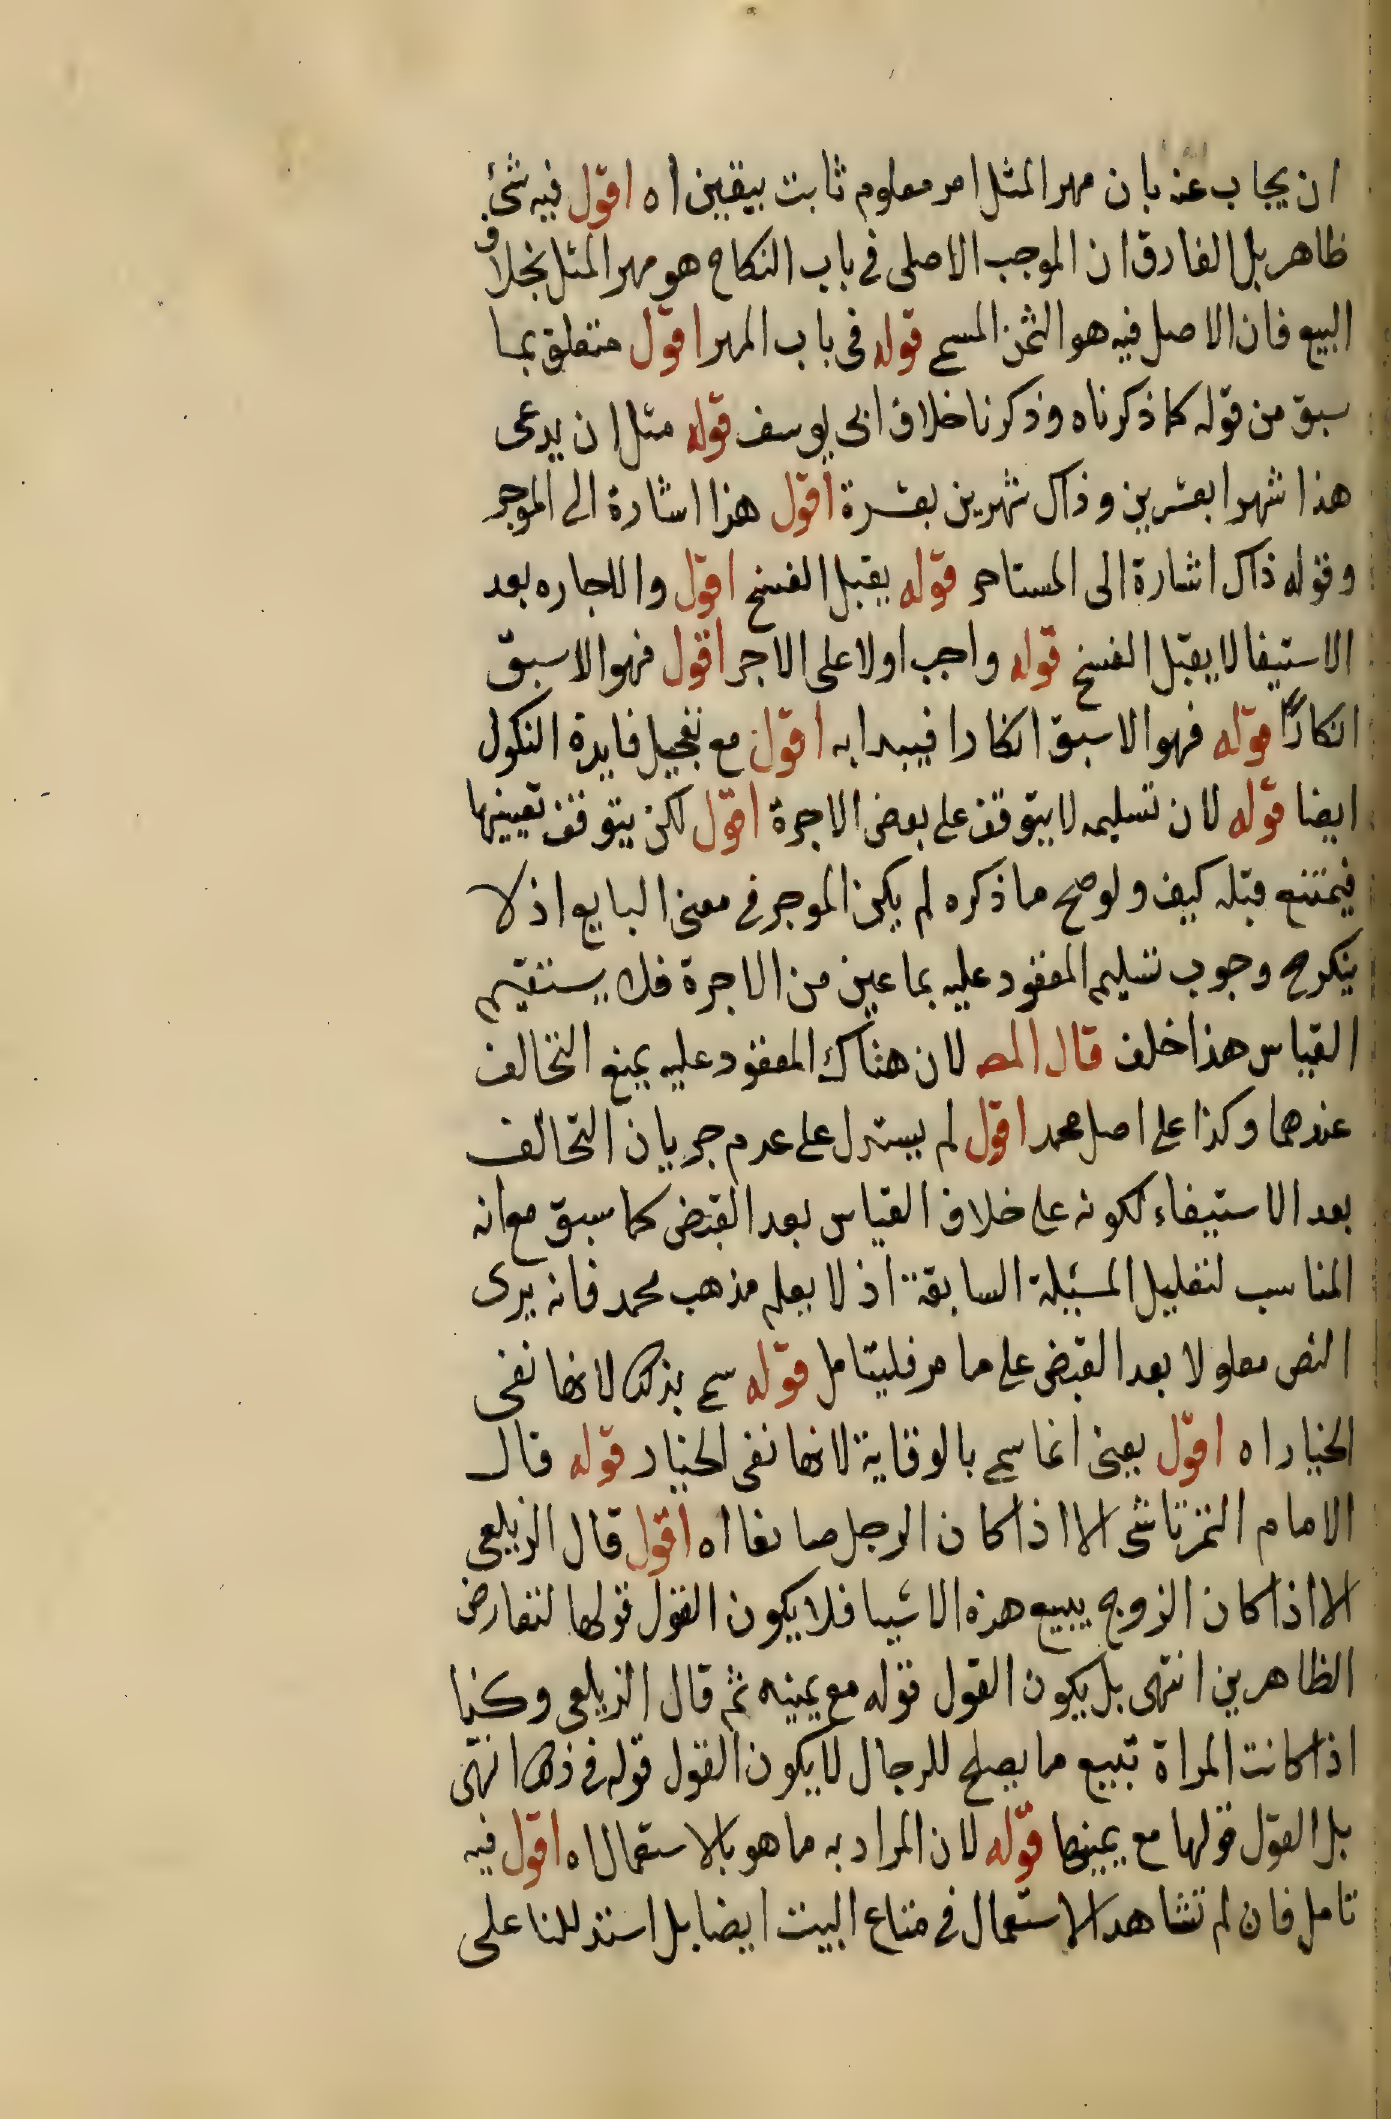 ان يجاب عنه بان مهر المثل امر معلوم ثابت بيقين اه اقول فيه شئ
ظاهر بل الفارق ان الموجب الاصلى فى باب النكاح هو مهر المثل بخلاف
البيع فان الاصل فيه هو الثمن المسمى قوله فى باب المهر اقول متعلق بما
سبق من قوله كما ذكرناه وذكرنا خلاف ابى يوسف قوله مثل ان يدعى
هذا شهرا بعشرين وذاك شهرين بعشرة اقول هذا اشارة الى الموجر
وقوله ذاك اشارة الى المستاجر قوله يقبل الفسخ اقول والاجاره بعد
الاستيفا لا يقبل الفسخ قوله واجب اولا على الاجر اقول فهو الاسبق
انكارًا قوله فهو الاسبق انكارا فيبدا به اقول مع تعجيل فايدة النكول
ايضا قوله لان تسليمه لا يتوقف على بعض الاجرة اقول لكن يتوقف تعيينها
فيمتنع قبله كيف ولو صح ما ذكره لم يكن الموجر فى معنى البايع اذ لا
ينكر مح وجوب تسليم المعقود عليه بما عين من الاجرة فلا يستقيم
القياس هذا خلف قال المص لان هناك المعقود عليه يمنع التخالف
عندهما وكذا على اصل محمد اقول لم يستدل على عدم جريان التحالف
بعد الاستيفاء لكونه على خلاف القياس بعد القبض كما سبق مع انه
المناسب لتعليل المسئلة السابقة اذ لا يعلم مذهب محمد فانه يرى
النص معلولا بعد القبض على ما مر فليتامل قوله سمى بذلك لانها نفى
الخيار اه اقول يعنى انما سمى بالوقاية لانها نفى الخيار قوله قال
الامام التمرتاشى الا اذا كان الرجل صائغا اه اقول قال الزيلعى
الا اذا كان الزوج يبيع هذه الاشيا فلا يكون القول قولها لتعارض
الظاهرين انتهى بل يكون القول قوله مع يمينه ثم قال الزيلعى وكذا
اذا كانت المراة تبيع ما يصلح للرجال لا يكون القول قوله فى ذلك انتهى
بل القول قولها مع يمينها قوله لان المراد به ما هو بالاستعمال اه اقول فيه
تامل فان لم تشاهد الاستعمال فى متاع البيت ايضا بل استدللنا على